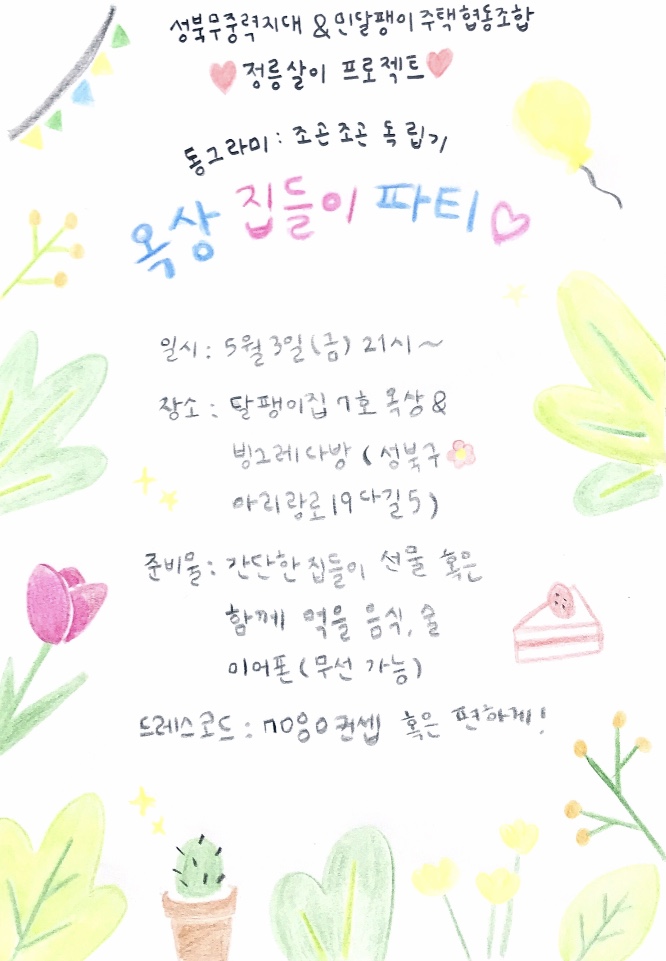 성북무중력지대 & 민달팽이 주택협동조합
정릉살이 프로젝트
동그라미 : 조곤조곤 독립기
옥상 집들이 파티
일시 : 5월 3일(금) 21시 ~
장소 : 달팽이집 7호 옥상 &
빙그레다방 (성북구
아리랑로19다길5)
준비물 : 간단한 집들이 선물 혹은
함께 먹을 음식, 술
이어폰 (무선 가능)
드레스코드 : 꾸안꾸 컨셉 혹은 편하게!